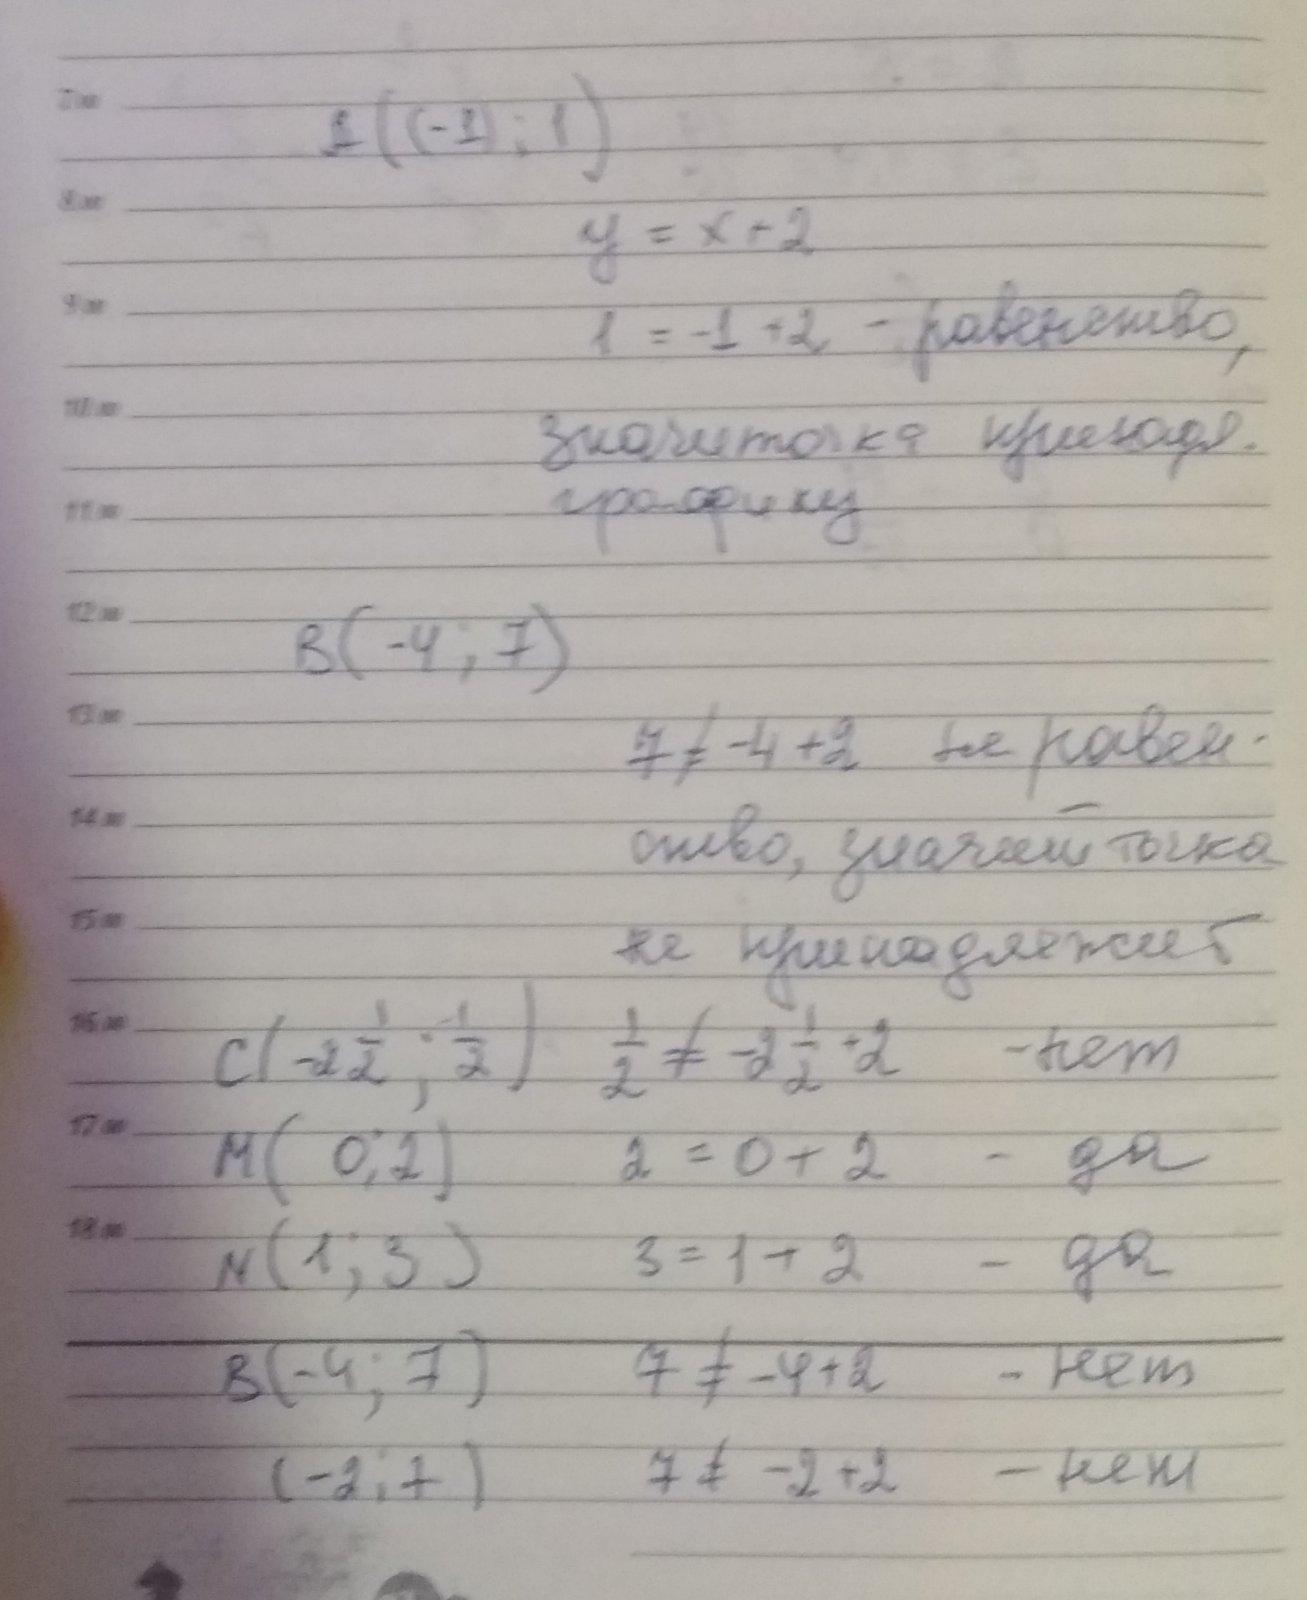 7 00
1((-1); 1)
8 00
y = x + 2
9 00
1 = -1 + 2 - равенство,
10 00
значит точка принадл.
11 00
графику
12 00
B(-4; 7)
13 00
7 ≠ -4 + 2 не равен-
14 00
ство, значит точка
15 00
не принадлежит
16 00
C(-2 1/2; -1/2) 1/2 ≠ -2 1/2 + 2 - нет
17 00
M( 0; 2) 2 = 0 + 2 - да
18 00
N(1; 3) 3 = 1 + 2 - да
B(-4; 7) 7 ≠ -4 + 2 - нет
(-2; 7) 7 ≠ -2 + 2 - нет